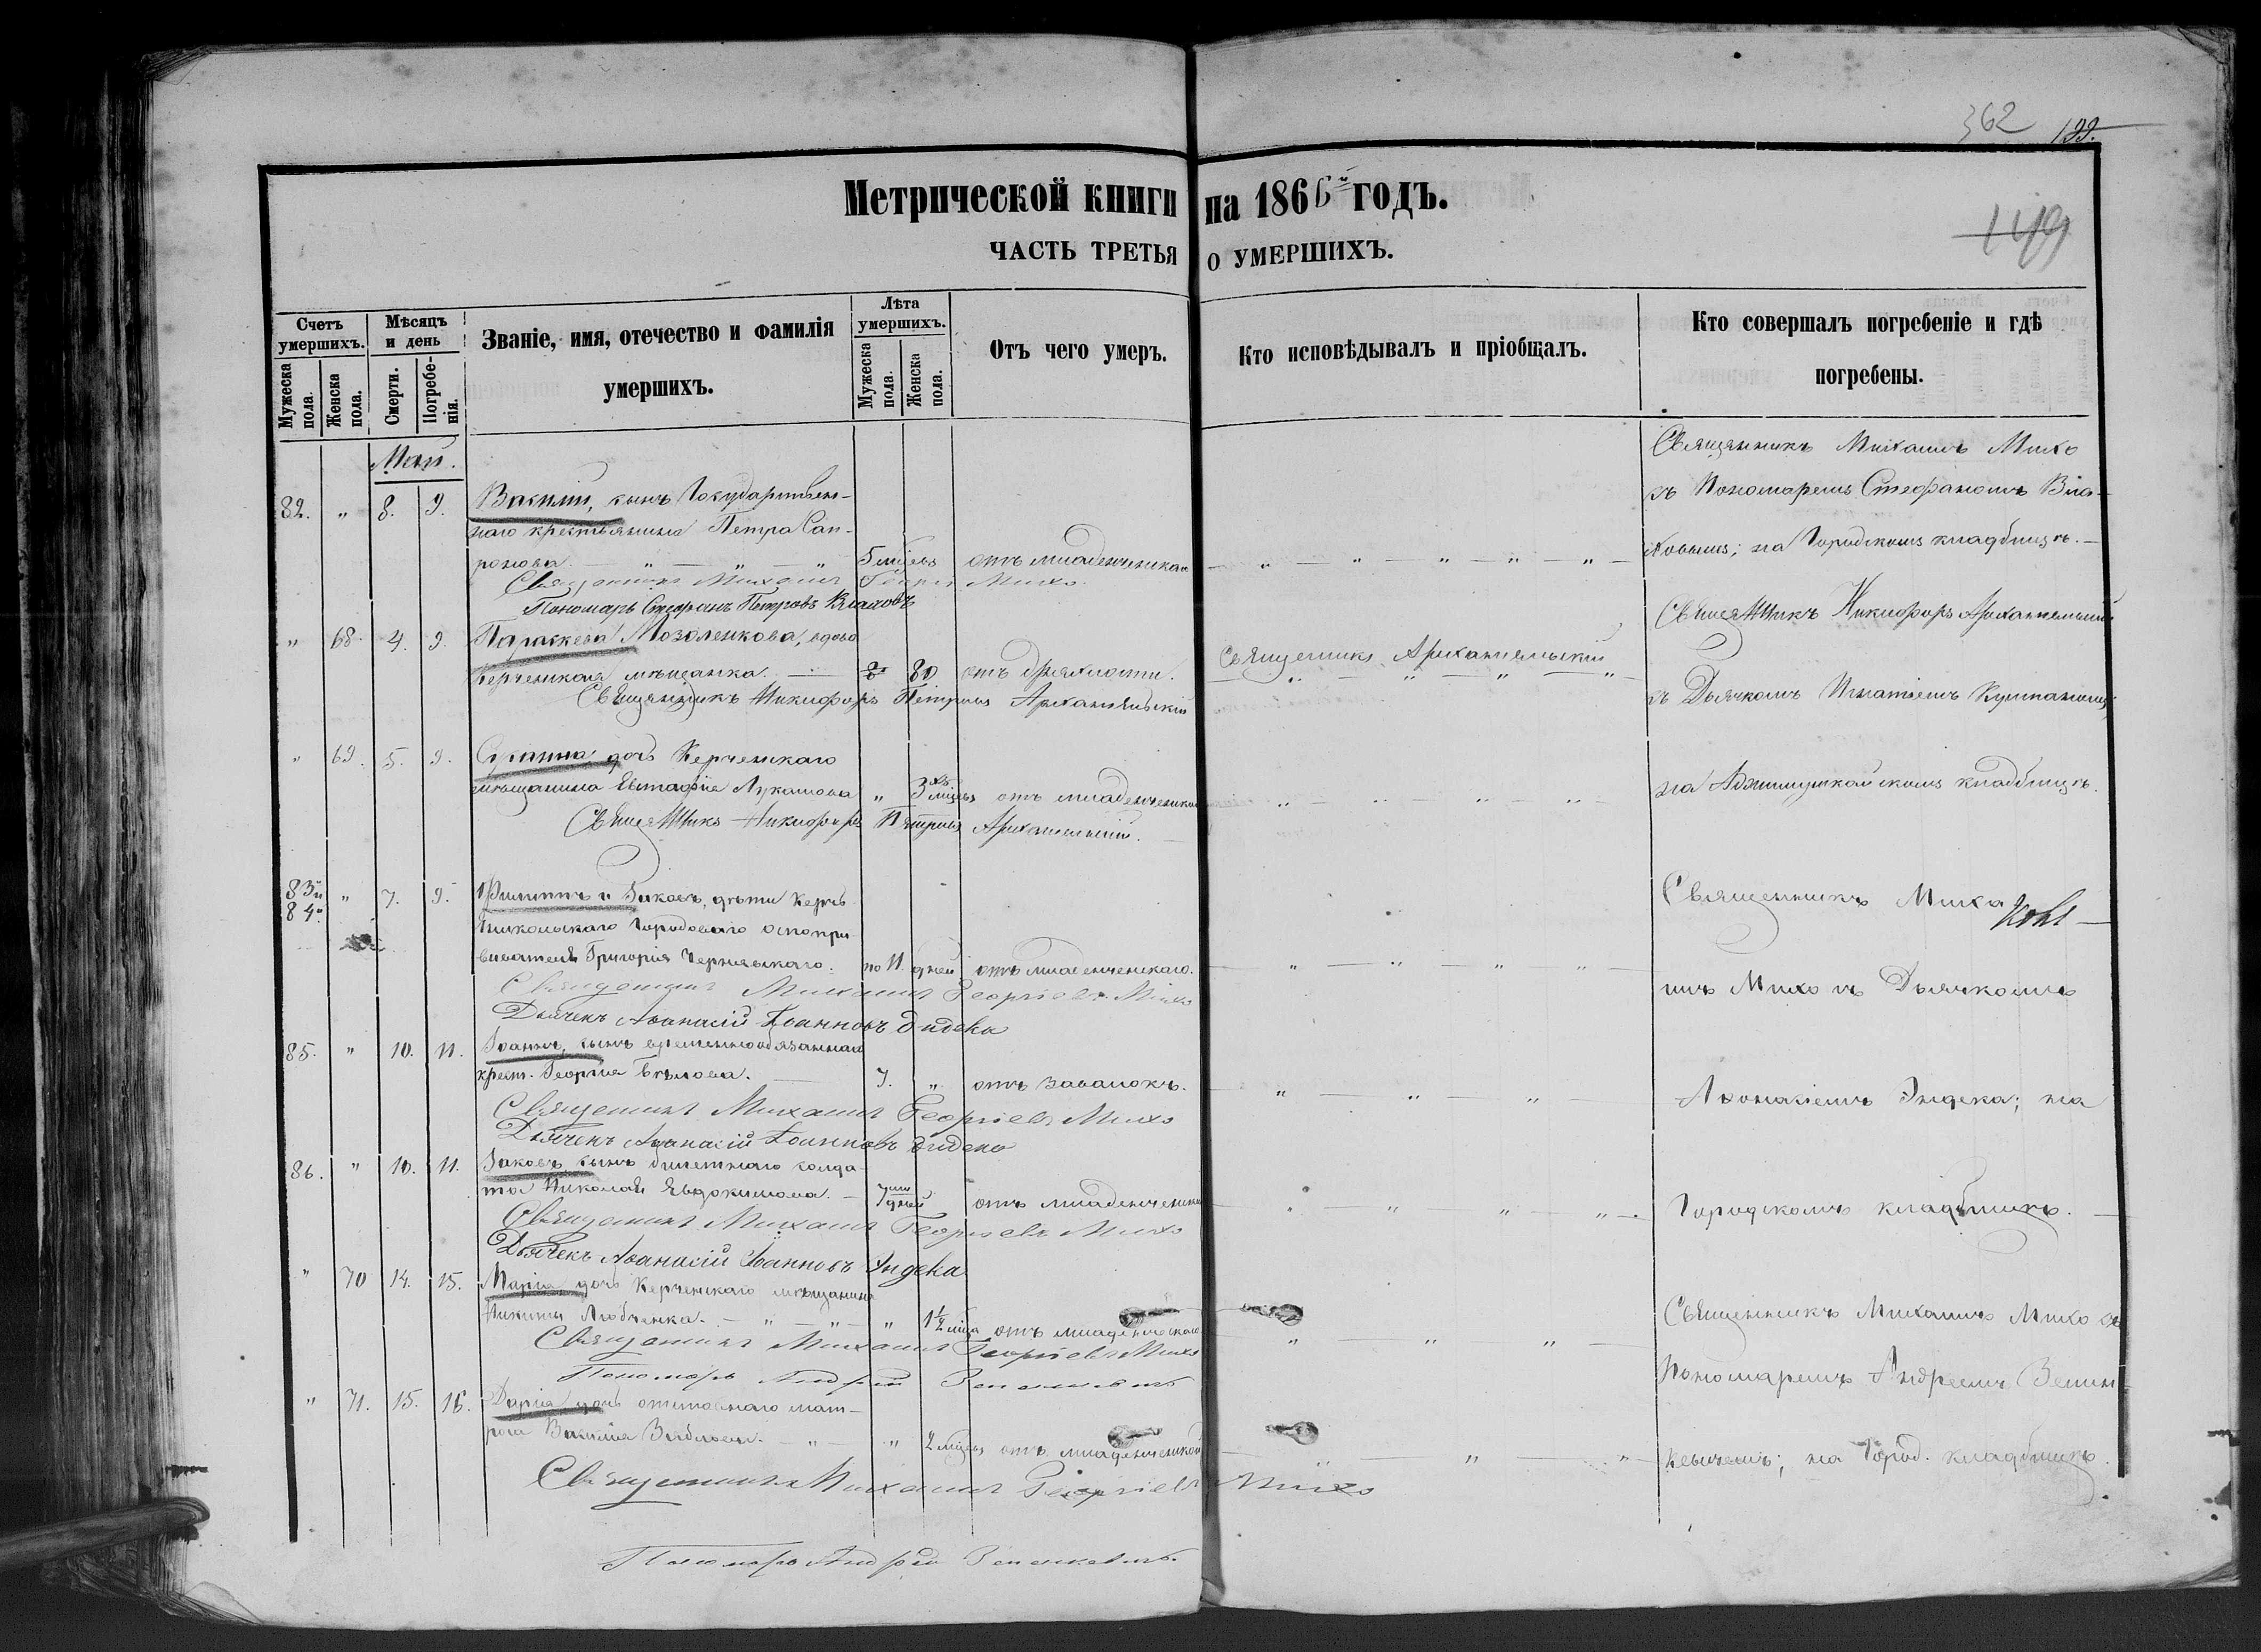 362 199.
Метрической книги на 1866й годъ.
149
ЧАСТЬ ТРЕТЬЯ О УМЕРШИХЪ.
Счетъ умершихъ.
Мужеска пола.
Женска пола.
Мѣсяцъ и день
Смерти.
Погребенія.
Званіе, имя, отечество и фамилія
умершихъ.
Лѣта умершихъ.
Мужеска пола.
Женска пола.
Отъ чего умеръ.
Кто исповѣдывалъ и пріобщалъ.
Кто совершалъ погребеніе и гдѣ
погребены.
Май.
82. " 8. 9. Василій, сынъ Государствен-
наго крестьянина Петра Сап-
ронова. 5 мѣсев отъ младенческаго
Священникъ Михаилъ Георгіевъ Михо
Пономарь Стефанъ Петровъ Влаховъ
Священникъ Михаилъ Михо
съ Пономаремъ Стефаномъ Вла-
ховымъ; на Городскомъ кладбищѣ.
" 68. 4. 9. Параскева Мозоленкова, вдова
Керченская мѣщанка. 80 отъ дряхлости.
Священникъ Архангельскій
Священникъ Никифоръ Петровъ Архангельскій
Священникъ Никифоръ Архангельскій
съ Дьячкомъ Игнатіемъ
на Аджимушкайскомъ кладбищѣ.
" 69. 5. 9. Сусанна дочь Керченскаго
мѣщанина Евстафія Лукашова " 3 хъ мѣсев отъ младенческаго
Священникъ Никифоръ Петровъ Архангельскій.
83й и 84й " 7. 9. Филиппъ и Іаковъ, дѣти Керчь
Еникольскаго Городоваго оспопри-
вивателя Григорія Чернявскаго. по 11. дней отъ младенческаго.
Священникъ Михаилъ Георгіевъ Михо
Дьячекъ Афанасій Іоанновъ Эидека
Священникъ Миха
илъ Михо съ Дьячкомъ
Афонасіемъ Эндека; на
Городскомъ кладбищѣ.
85. " 10. 11. Іоаннъ, сынъ временнообязаннаго
крест. Георгія Бѣлова. 7. " отъ завалокъ.
Священникъ Михаилъ Георгіевъ Михо
Дьячекъ Афанасій Іоанновъ Эидека
86. " 10. 11. Іаковъ, сынъ билетнаго солда-
та Николая Явдокимова. 7ми дней отъ младенческаго
Священникъ Михаилъ Георгіевъ Михо
Дьячекъ Афанасій Іоанновъ Эндека
" 70 14. 15. Марія дочь Керченскаго мѣщанина
Никиты Любченка. " 1½ мѣца отъ младенческаго
Священникъ Михаилъ Георгіевъ Михо
Пономарь Андрей Зенкевичъ
Священникъ Михаилъ Михо съ
Пономаремъ Андреемъ Зенин-
кевичемъ; на Город. кладбищѣ.
" 71. 15. 16. Дарія дочь отставнаго мат-
роса Василія " 2 мѣсев отъ младенческой
Священникъ Михаилъ Георгіевъ Михо
Пономарь Андрей Зенкевичъ.